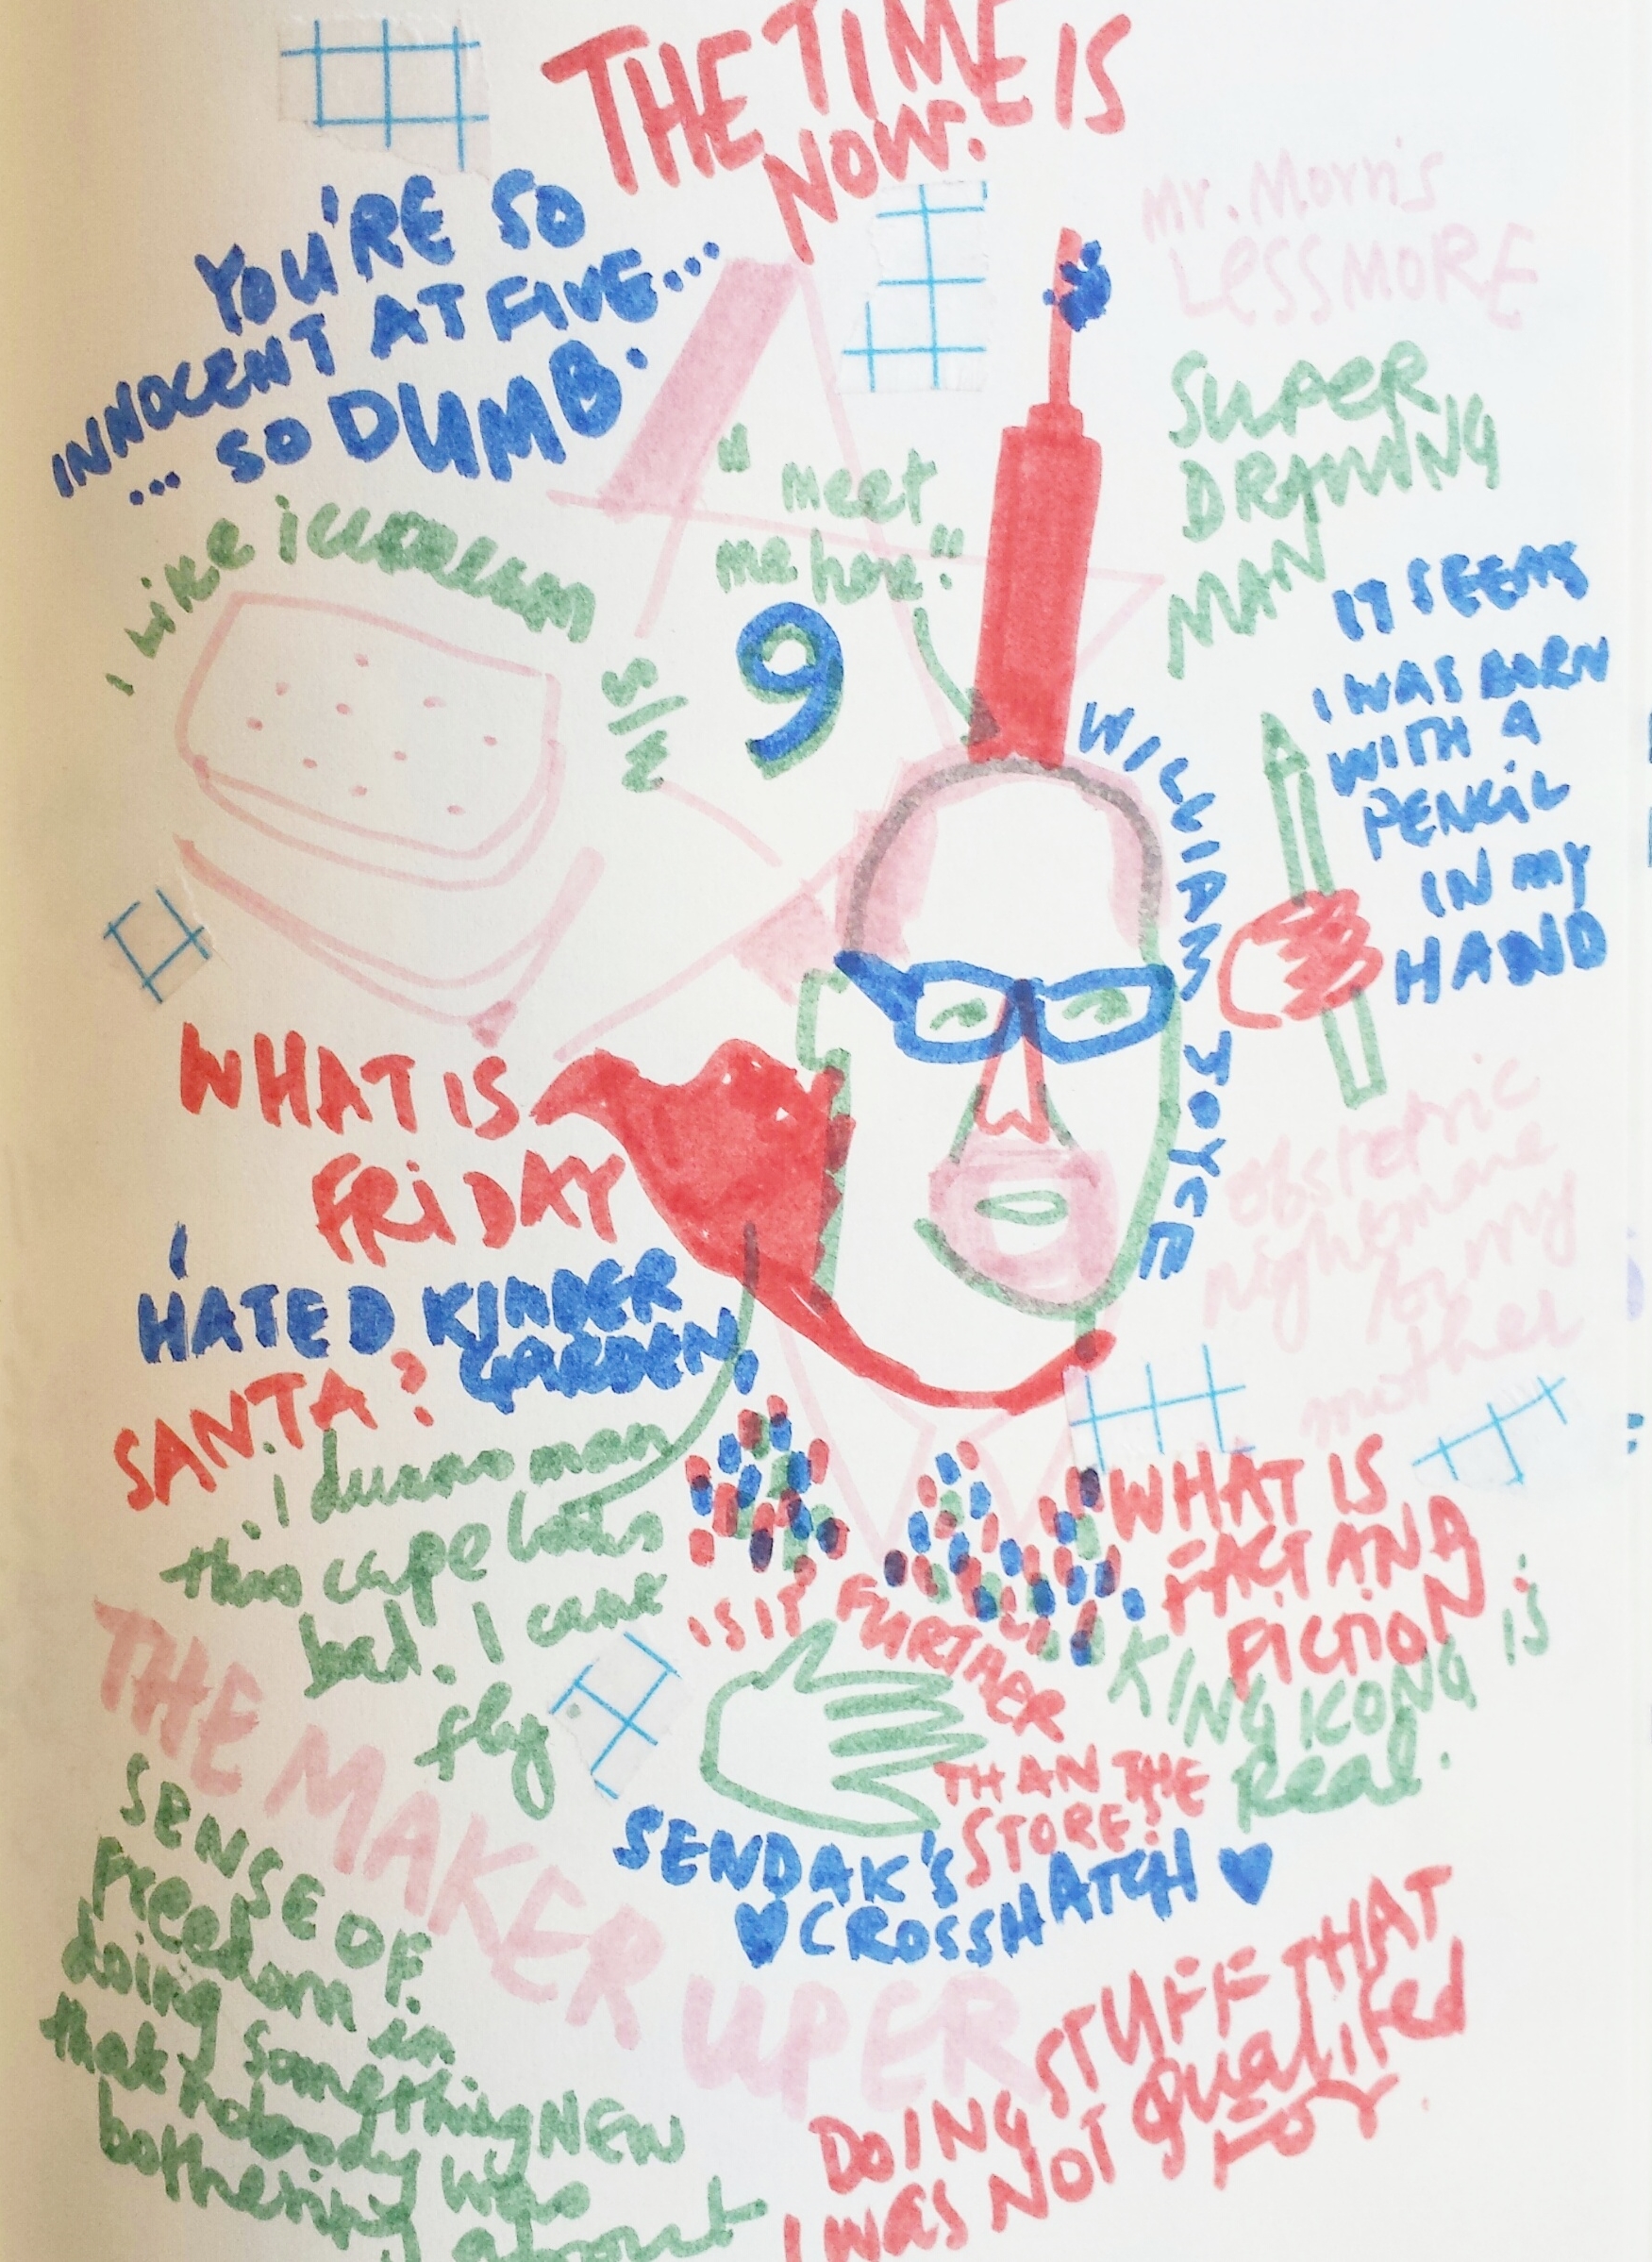 THE TIME IS
NOW.
YOU'RE SO
INNOCENT AT FIVE...
... SO DUMB.
Mr. Morris
LESSMORE
"meet
me here"
9
SUPER
DRAWING
MAN
I LIKE
S/W
IT SEEMS
I WAS BORN
WITH A
PENCIL
IN MY
HAND
WILLIAM JOYCE
WHAT IS
FRIDAY
I
HATED KINDER
GARDEN,
SANTA?
obstetric
nightmare
for my
mother
i dunno man
this cape looks
bad. I can
fly
WHAT IS
FACT AND
FICTION
KING KONG IS
Real.
IS IT FURTHER
THAN THE
STORE?
THE MAKER UPER
SENDAK'S
♥ CROSSHATCH ♥
SENSE OF
freedom in
doing something NEW
that nobody was
bothering about
DOING STUFF THAT
I WAS NOT Qualified
FOR.